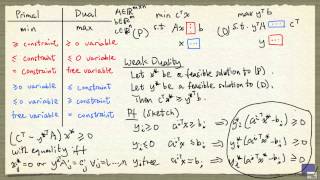 Primal Dual
min max
≥ constraint ≥ 0 variable
≤ constraint ≤ 0 variable
= constraint free variable
≥ 0 variable ≤ constraint
≤ 0 variable ≥ constraint
free variable = constraint
A ∈ ℝ^{m×n}
b ∈ ℝ^m
c ∈ ℝ^n
(P) min cᵀx
s.t. Ax ⋯ b
x ⋯
(D) max yᵀb
s.t. yᵀA ⋯ cᵀ
y ⋯
Weak Duality
Let x* be a feasible solution to (P)
Let y* be a feasible solution to (D)
Then cᵀx* ≥ y*ᵀb
Pf (Sketch)
y_i ≥ 0 a^{(i)ᵀ}x ≥ b_i
y_i ≤ 0 a^{(i)ᵀ}x ≤ b_i
y_i free a^{(i)ᵀ}x = b_i
(cᵀ − y*ᵀA) x* ≥ 0
with equality iff
x*_j = 0 or y*ᵀA_j = c_j ∀ j = 1,…,n